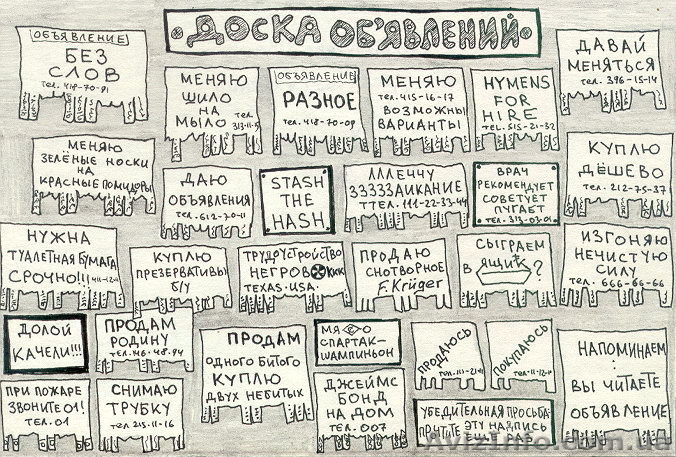 ДОСКА ОБ'ЯВЛЕНИЙ
ОБЪЯВЛЕНИЕ
БЕЗ
СЛОВ
тел. 418-70-91
МЕНЯЮ
ШИЛО
НА
МЫЛО тел.
313-11-5
ОБЪЯВЛЕНИЕ
РАЗНОЕ
тел. 418-70-09
МЕНЯЮ
тел. 415-16-17
ВОЗМОЖНЫ
ВАРИАНТЫ
HYMENS
FOR
HIRE
TEL. 515-21-32
ДАВАЙ
МЕНЯТЬСЯ
тел. 396-15-14
МЕНЯЮ
ЗЕЛЁНЫЕ НОСКИ
НА
КРАСНЫЕ ПОМИДОРЫ
ДАЮ
ОБЪЯВЛЕНИЯ
тел. 612-70-11
STASH
THE
HASH
ЛЛЛЕЧЧУ
ЗЗЗЗЗАИКАНИЕ
ТТЕЛ. 111-22-33-44
ВРАЧ
РЕКОМЕНДУЕТ
СОВЕТУЕТ
ПУГАЕТ
тел. 313-03-01
КУПЛЮ
ДЁШЕВО
тел. 212-75-37
НУЖНА
ТУАЛЕТНАЯ БУМАГА
СРОЧНО!!!
КУПЛЮ
ПРЕЗЕРВАТИВЫ
Б/У
ТРУДУСТРОЙСТВО
НЕГРОВ KKK
TEXAS. USA.
ПРОДАЮ
СНОТВОРНОЕ
F. Krüger
СЫГРАЕМ
В ЯЩИК?
ИЗГОНЯЮ
НЕЧИСТУЮ
СИЛУ
тел. 666-66-66
ДОЛОЙ
КАЧЕЛИ!!!
ПРОДАМ
РОДИНУ
тел. 46-48-94
ПРОДАМ
ОДНОГО БИТОГО
КУПЛЮ
ДВУХ НЕБИТЫХ
МЯСО
СПАРТАК-
ШАМПИНЬОН
ПРОДАЮСЬ
ПОКУПАЮСЬ
НАПОМИНАЕМ:
ВЫ ЧИТАЕТЕ
ОБЪЯВЛЕНИЕ
ПРИ ПОЖАРЕ
ЗВОНИТЕ 01!
ТЕЛ. 01
СНИМАЮ
ТРУБКУ
тел. 215-11-16
ДЖЕЙМС
БОНД
НА ДОМ
тел. 007
УБЕДИТЕЛЬНАЯ ПРОСЬБА:
ПРЧТИТЕ ЭТУ НАДПИСЬ
AvizInfo.com.ua